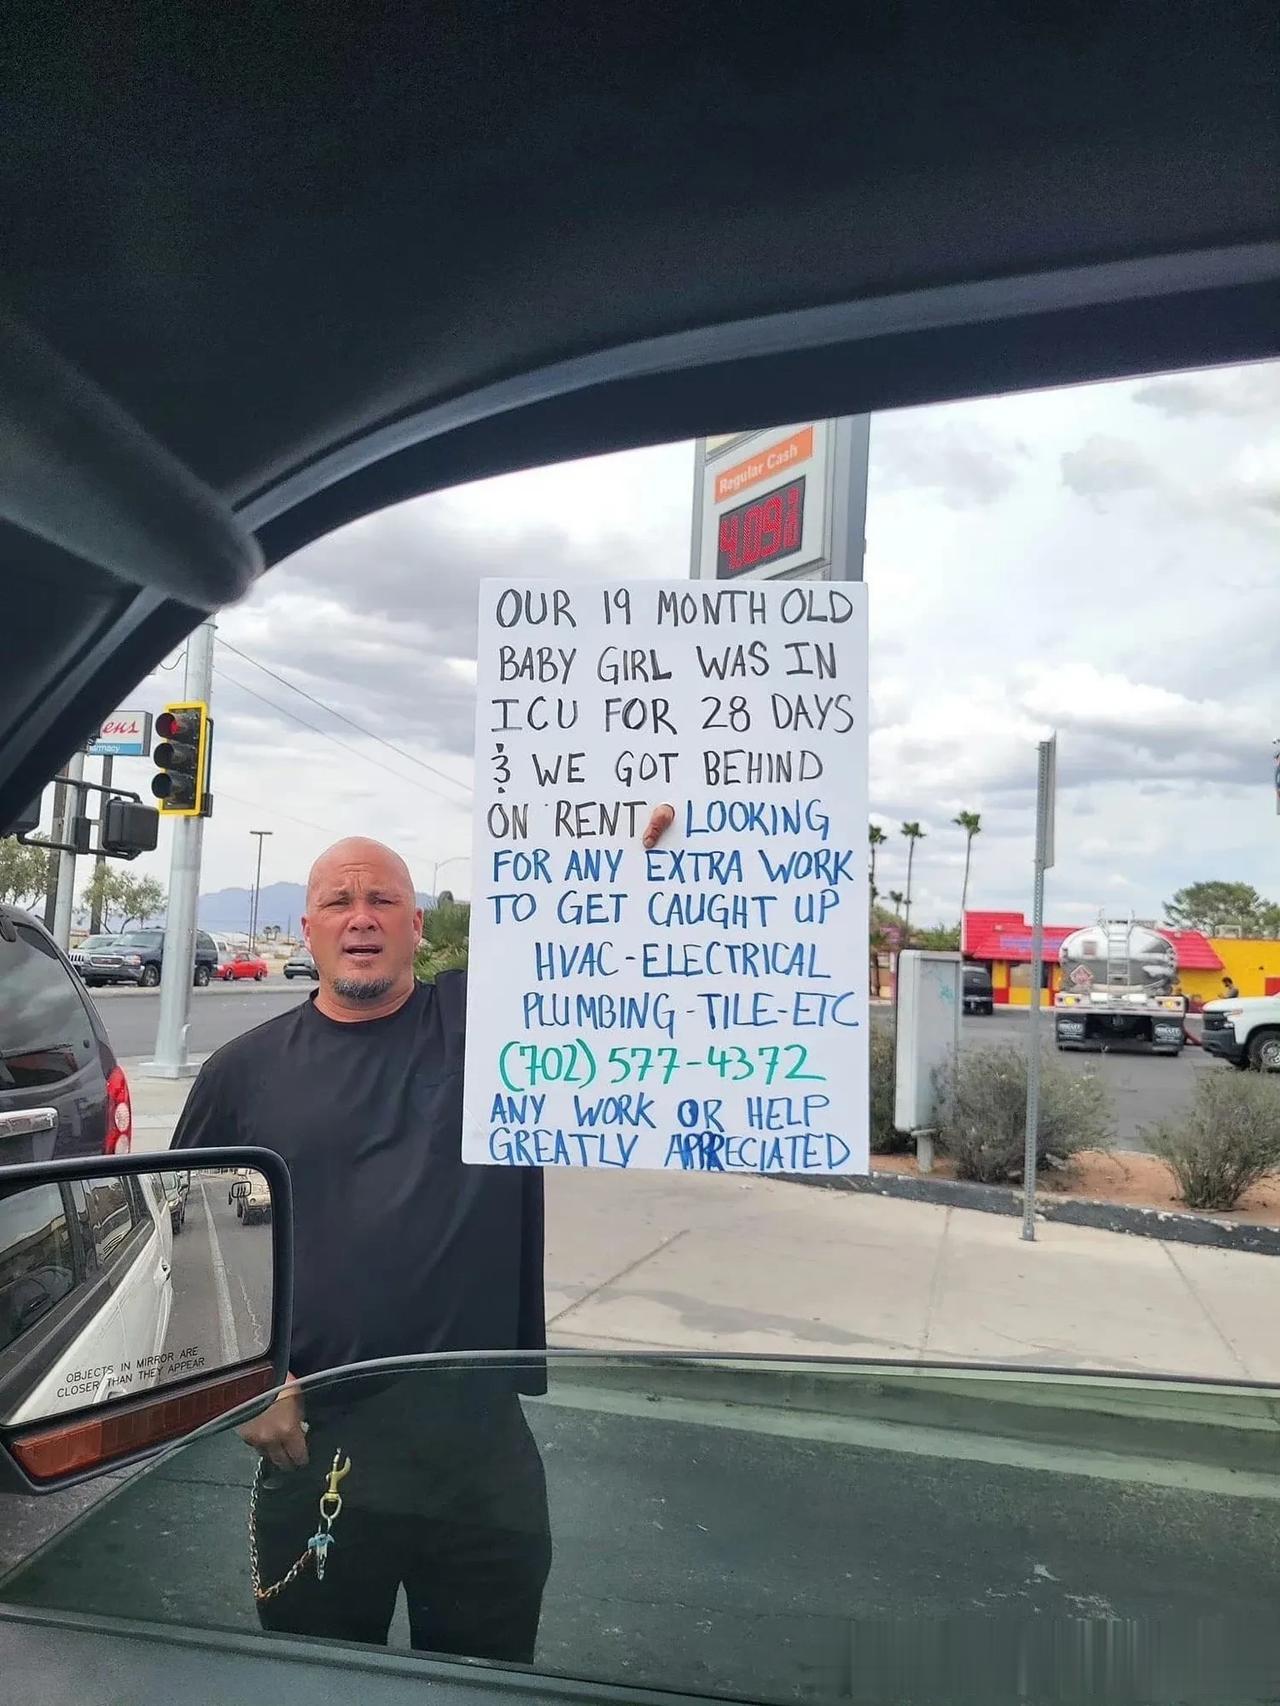 Regular Cash
4.09
OUR 19 MONTH OLD
BABY GIRL WAS IN
ICU FOR 28 DAYS
& WE GOT BEHIND
ON RENT LOOKING
FOR ANY EXTRA WORK
TO GET CAUGHT UP
HVAC-ELECTRICAL
PLUMBING-TILE-ETC
(702) 577-4372
ANY WORK OR HELP
GREATLY APPRECIATED
OBJECTS IN MIRROR ARE
CLOSER THAN THEY APPEAR